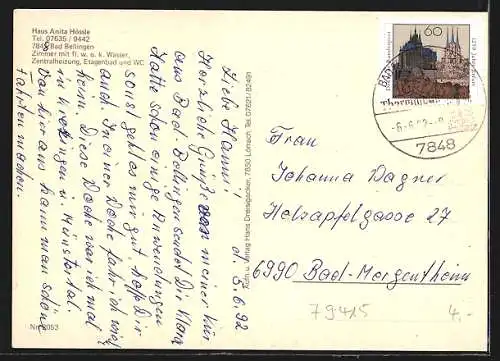 Haus Anita Hössle
Tel. 07635 / 9442
7848 Bad Bellingen
Zimmer mit fl. w. u. k. Wasser,
Zentralheizung, Etagenbad und WC
Nr. 2053
d. 5.6.92
Liebe Hanni!
Herzliche Grüße von meiner Kur
aus Bad Bellingen sendet Dir Klara
Hatte schon einige Anwendungen
sonst geht es mir gut, hoffe Dir
auch. In einer Woche fahr ich wied
heim. Diese Woche war ich mal
in u. Münstertal.
Von hier aus kann man schön
fahrten machen.
Verlag Hans Dreispacker, 7850 Lörrach Tel. 07621/82491
60
BAD
-6.6.92-
7848
Frau
Johanna Wagner
Holzapfelgasse 27
6990 Bad-Mergentheim
79415
4.-